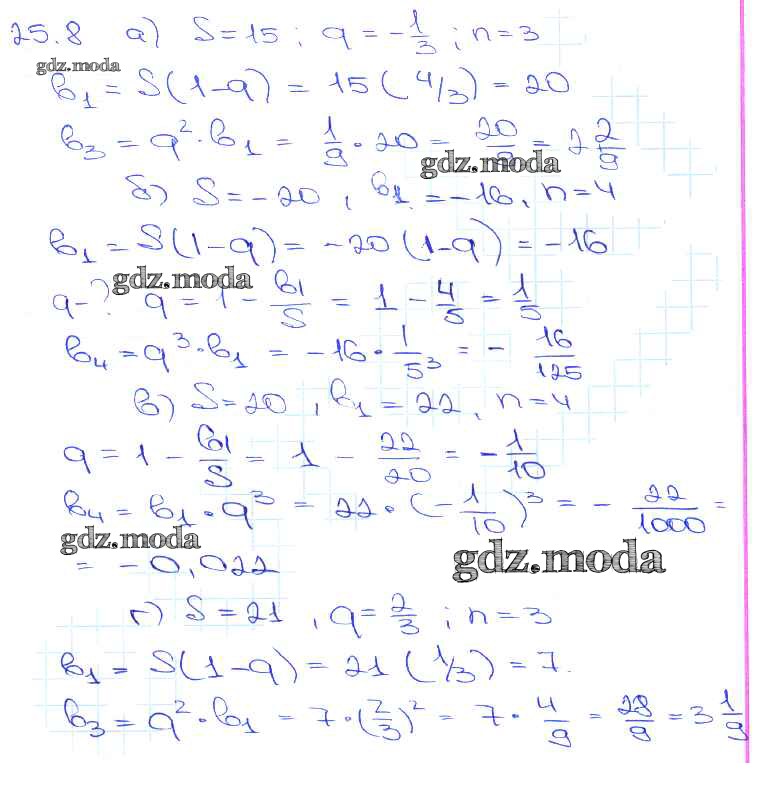 25.8 а) S=15 ; q = -1/3 ; n=3
gdz.moda
b₁ = S(1-q) = 15 (4/3) = 20
b₃ = q²·b₁ = 1/9 · 20 = 20/9 = 2 2/9
gdz.moda
б) S=-20 , b₁ = -16, n=4
b₁ = S(1-q) = -20 (1-q) = -16
gdz.moda
q-? q = 1 - b₁/S = 1 - 4/5 = 1/5
b₄ = q³·b₁ = -16 · 1/5³ = - 16/125
в) S=20 , b₁ = 22, n=4
q = 1 - b₁/S = 1 - 22/20 = -1/10
b₄ = b₁·q³ = 22·(-1/10)³ = - 22/1000 =
gdz.moda
gdz.moda
= -0,022
г) S=21 , q= 2/3 ; n=3
b₁ = S(1-q) = 21 (1/3) = 7.
b₃ = q²·b₁ = 7·(2/3)² = 7· 4/9 = 28/9 = 3 1/9